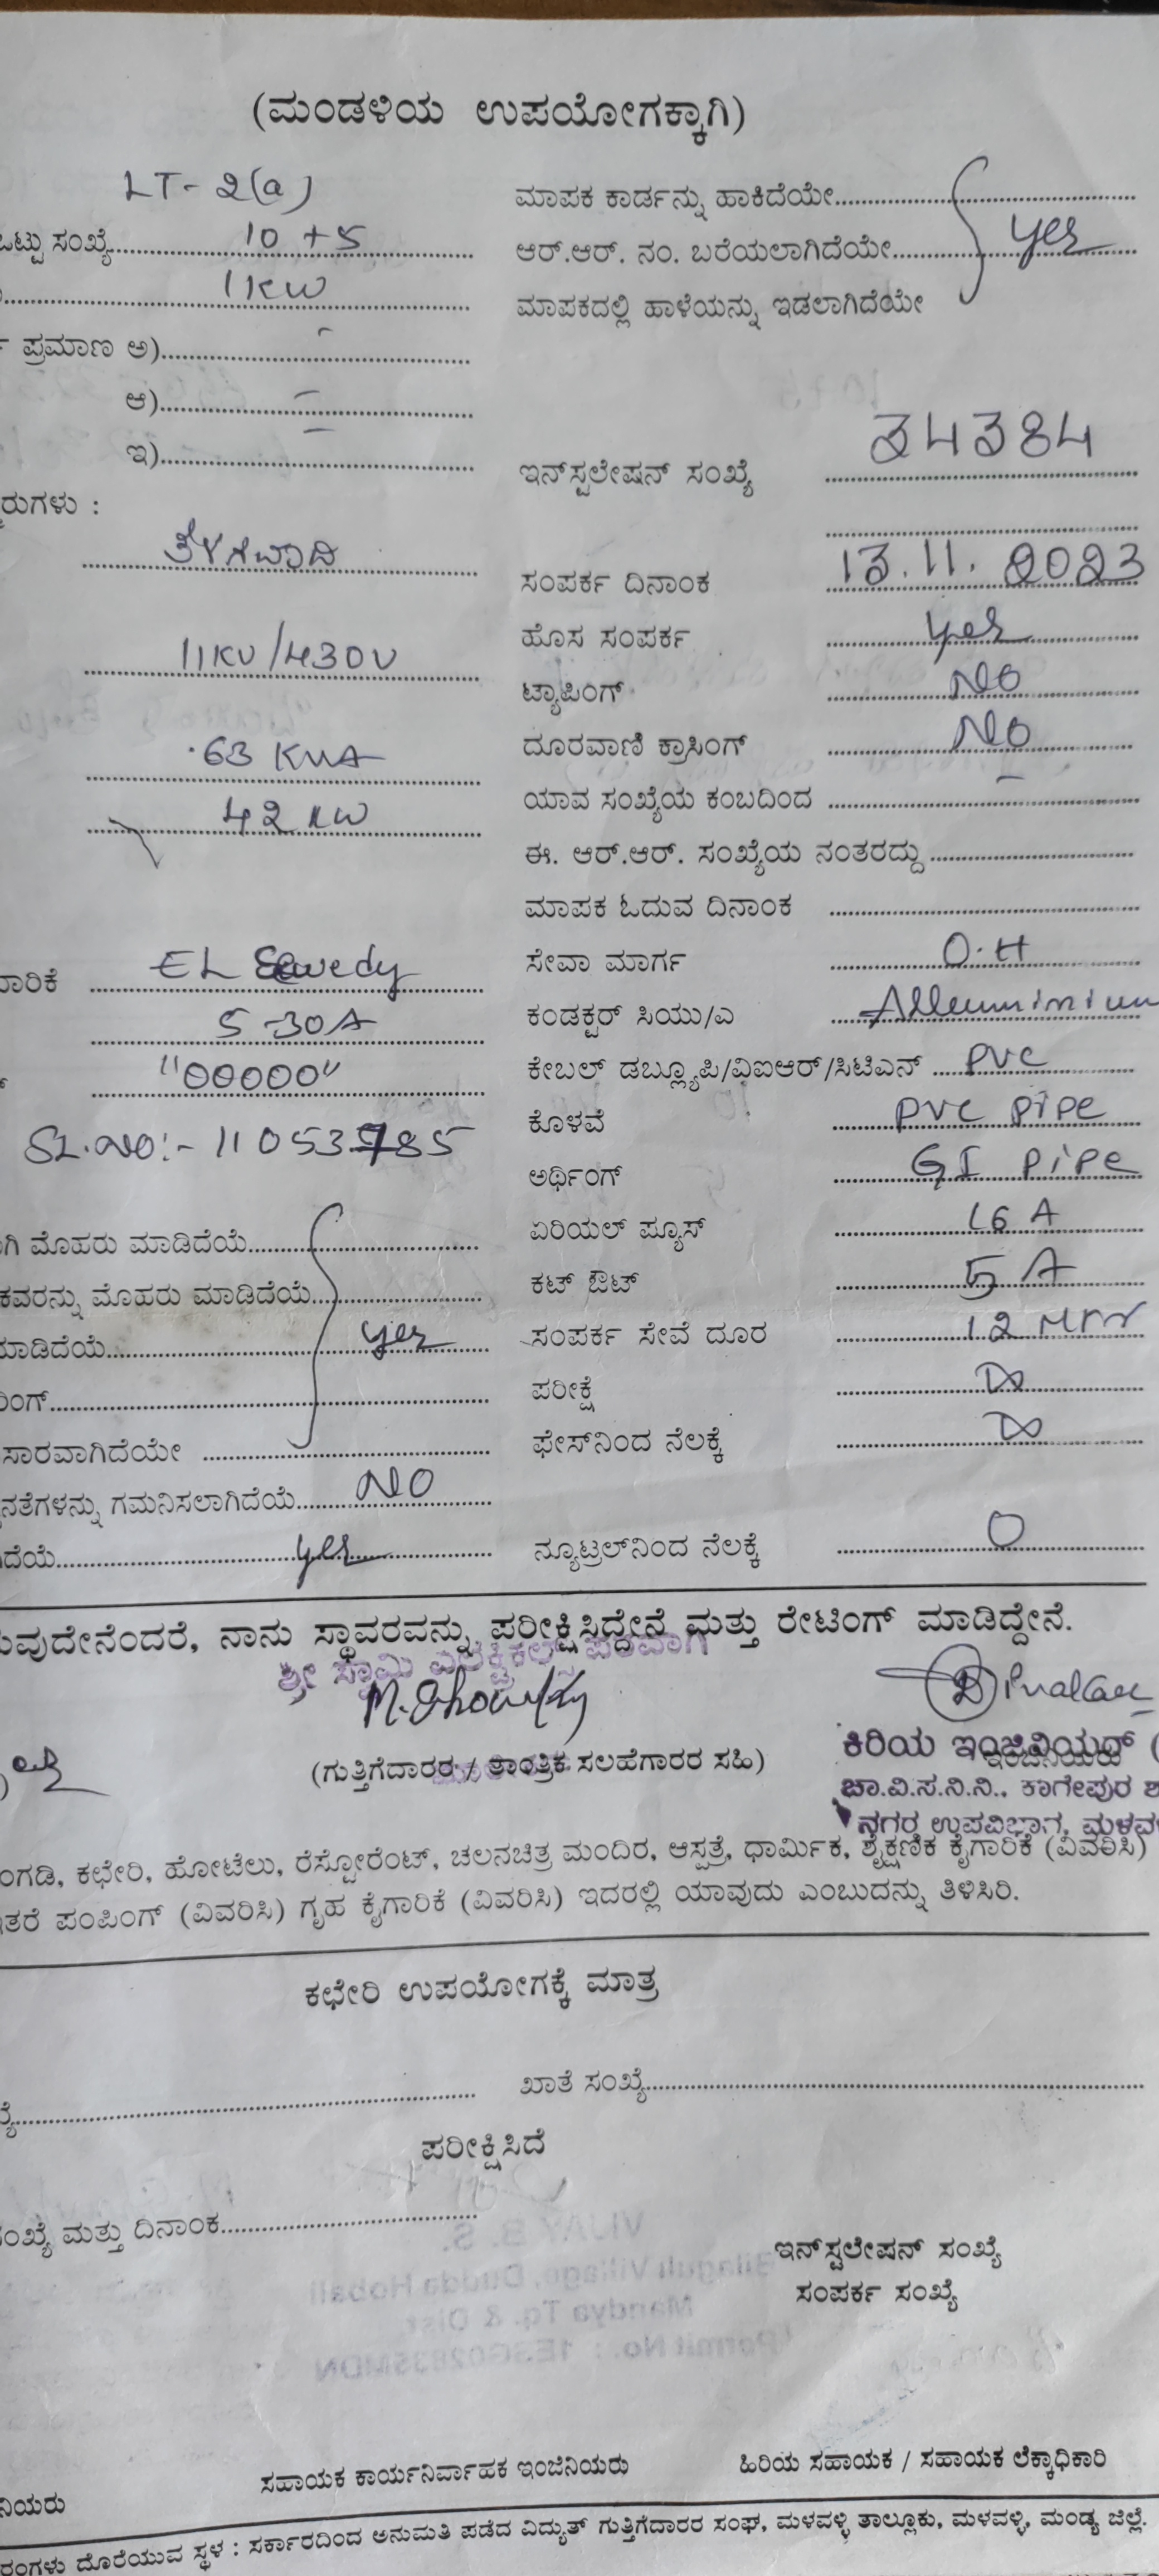 (ಮಂಡಳಿಯ ಉಪಯೋಗಕ್ಕಾಗಿ)
LT- 2(a)
ಒಟ್ಟು ಸಂಖ್ಯೆ 10 + 5
1KW
ಪ್ರಮಾಣ ಅ) -
ಆ) -
ಇ) -
ರುಗಳು :
ತೆಳಗವಾದಿ
11KV/430V
63 KVA
42 KW
ಾರಿಕೆ EL Sewedy
5-30A
"00000"
SL.NO:- 11053785
ಗಿ ಮೊಹರು ಮಾಡಿದೆಯೆ
ಕವರನ್ನು ಮೊಹರು ಮಾಡಿದೆಯೆ
ಮಾಡಿದೆಯೆ yes
ರಿಂಗ್
ಸಾರವಾಗಿದೆಯೇ
ನತೆಗಳನ್ನು ಗಮನಿಸಲಾಗಿದೆಯೆ NO
ದೆಯೆ yes
ಮಾಪಕ ಕಾರ್ಡನ್ನು ಹಾಕಿದೆಯೇ
ಆರ್.ಆರ್. ನಂ. ಬರೆಯಲಾಗಿದೆಯೇ yes
ಮಾಪಕದಲ್ಲಿ ಹಾಳೆಯನ್ನು ಇಡಲಾಗಿದೆಯೇ
ಇನ್‌ಸ್ಟಲೇಷನ್ ಸಂಖ್ಯೆ 34384
ಸಂಪರ್ಕ ದಿನಾಂಕ 13.11.2023
ಹೊಸ ಸಂಪರ್ಕ yes
ಟ್ಯಾಪಿಂಗ್ NO
ದೂರವಾಣಿ ಕ್ರಾಸಿಂಗ್ NO
ಯಾವ ಸಂಖ್ಯೆಯ ಕಂಬದಿಂದ -
ಈ. ಆರ್.ಆರ್. ಸಂಖ್ಯೆಯ ನಂತರದ್ದು
ಮಾಪಕ ಓದುವ ದಿನಾಂಕ
ಸೇವಾ ಮಾರ್ಗ O.H
ಕಂಡಕ್ಟರ್ ಸಿಯು/ಎ Alleuminium
ಕೇಬಲ್ ಡಬ್ಲ್ಯೂಪಿ/ವಿಐಆರ್/ಸಿಟಿಎಸ್ PVC
ಕೊಳವೆ PVC PIPE
ಅರ್ಥಿಂಗ್ GI PIPE
ಏರಿಯಲ್ ಪ್ಯೂಸ್ 16 A
ಕಟ್ ಔಟ್ 5 A
ಸಂಪರ್ಕ ಸೇವೆ ದೂರ 12
ಪರೀಕ್ಷೆ ∞
ಫೇಸ್‌ನಿಂದ ನೆಲಕ್ಕೆ ∞
ನ್ಯೂಟ್ರಲ್‌ನಿಂದ ನೆಲಕ್ಕೆ 0
ುವುದೇನೆಂದರೆ, ನಾನು ಸ್ಥಾವರವನ್ನು ಪರೀಕ್ಷಿಸಿದ್ದೇನೆ ಮತ್ತು ರೇಟಿಂಗ್ ಮಾಡಿದ್ದೇನೆ.
ಶ್ರೀ ಸ್ವಾಮಿ ಎಲೆಕ್ಟ್ರಿಕಲ್ಸ್ ಪರವಾಗಿ
(ಗುತ್ತಿಗೆದಾರರ / ತಾಂತ್ರಿಕ ಸಲಹೆಗಾರರ ಸಹಿ)
ಕಿರಿಯ ಇಂಜಿನಿಯರ್ (
ಚಾ.ವಿ.ಸ.ನಿ.ನಿ., ಕಾಗೇಪುರ ಶ
ನಗರ ಉಪವಿಭಾಗ, ಮಳವ
ಂಗಡಿ, ಕಛೇರಿ, ಹೋಟೆಲು, ರೆಸ್ಟೋರೆಂಟ್, ಚಲನಚಿತ್ರ ಮಂದಿರ, ಆಸ್ಪತ್ರೆ, ಧಾರ್ಮಿಕ, ಶೈಕ್ಷಣಿಕ ಕೈಗಾರಿಕೆ (ವಿವರಿಸಿ)
ಇತರೆ ಪಂಪಿಂಗ್ (ವಿವರಿಸಿ) ಗೃಹ ಕೈಗಾರಿಕೆ (ವಿವರಿಸಿ) ಇದರಲ್ಲಿ ಯಾವುದು ಎಂಬುದನ್ನು ತಿಳಿಸಿರಿ.
ಕಛೇರಿ ಉಪಯೋಗಕ್ಕೆ ಮಾತ್ರ
ಖಾತೆ ಸಂಖ್ಯೆ
ಪರೀಕ್ಷಿಸಿದೆ
ಸಂಖ್ಯೆ ಮತ್ತು ದಿನಾಂಕ
ಇನ್‌ಸ್ಟಲೇಷನ್ ಸಂಖ್ಯೆ
ಸಂಪರ್ಕ ಸಂಖ್ಯೆ
ನಿಯರು
ಸಹಾಯಕ ಕಾರ್ಯನಿರ್ವಾಹಕ ಇಂಜಿನಿಯರು
ಹಿರಿಯ ಸಹಾಯಕ / ಸಹಾಯಕ ಲೆಕ್ಕಾಧಿಕಾರಿ
ರಂಗಳು ದೊರೆಯುವ ಸ್ಥಳ : ಸರ್ಕಾರದಿಂದ ಅನುಮತಿ ಪಡೆದ ವಿದ್ಯುತ್ ಗುತ್ತಿಗೆದಾರರ ಸಂಘ, ಮಳವಳ್ಳಿ ತಾಲ್ಲೂಕು, ಮಳವಳ್ಳಿ, ಮಂಡ್ಯ ಜಿಲ್ಲೆ.